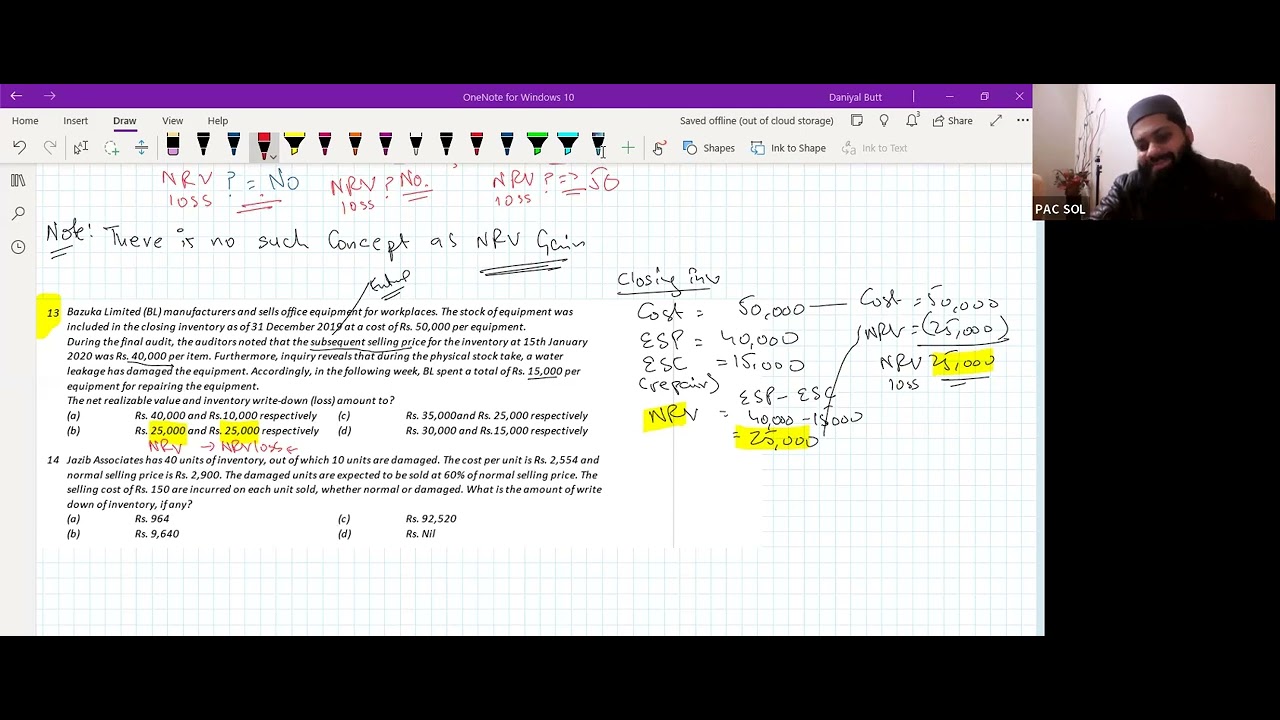 OneNote for Windows 10
Daniyal Butt
Home Insert Draw View Help
Saved offline (out of cloud storage)
Share
Shapes
Ink to Shape
Ink to Text
PAC SOL
NRV ? = No
loss
NRV ? No.
loss
NRV ? => 50
loss
Note: There is no such Concept as NRV Gain
13 Bazuka Limited (BL) manufacturers and sells office equipment for workplaces. The stock of equipment was
included in the closing inventory as of 31 December 2019 at a cost of Rs. 50,000 per equipment.
During the final audit, the auditors noted that the subsequent selling price for the inventory at 15th January
2020 was Rs. 40,000 per item. Furthermore, inquiry reveals that during the physical stock take, a water
leakage has damaged the equipment. Accordingly, in the following week, BL spent a total of Rs. 15,000 per
equipment for repairing the equipment.
The net realizable value and inventory write-down (loss) amount to?
(a) Rs. 40,000 and Rs.10,000 respectively (c) Rs. 35,000and Rs. 25,000 respectively
(b) Rs. 25,000 and Rs. 25,000 respectively (d) Rs. 30,000 and Rs.15,000 respectively
NRV → NRV loss
14 Jazib Associates has 40 units of inventory, out of which 10 units are damaged. The cost per unit is Rs. 2,554 and
normal selling price is Rs. 2,900. The damaged units are expected to be sold at 60% of normal selling price. The
selling cost of Rs. 150 are incurred on each unit sold, whether normal or damaged. What is the amount of write
down of inventory, if any?
(a) Rs. 964 (c) Rs. 92,520
(b) Rs. 9,640 (d) Rs. Nil
Closing inv
Cost = 50,000
ESP = 40,000
ESC = 15,000
(repair)
ESP - ESC
NRV = 40,000 - 15000
= 25,000
Cost = 50,000
NRV = (25,000)
NRV 25,000
loss